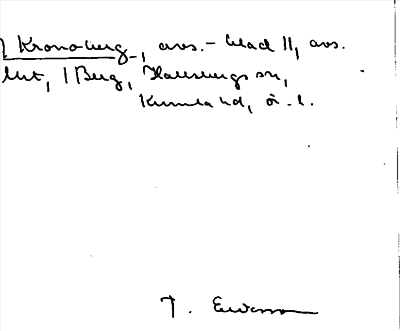 Kronoberg, avs.- blad 11, avs.
1 Berg, Hallsbergs sn,
Kumla hd, ö.l.
T. Ericsson